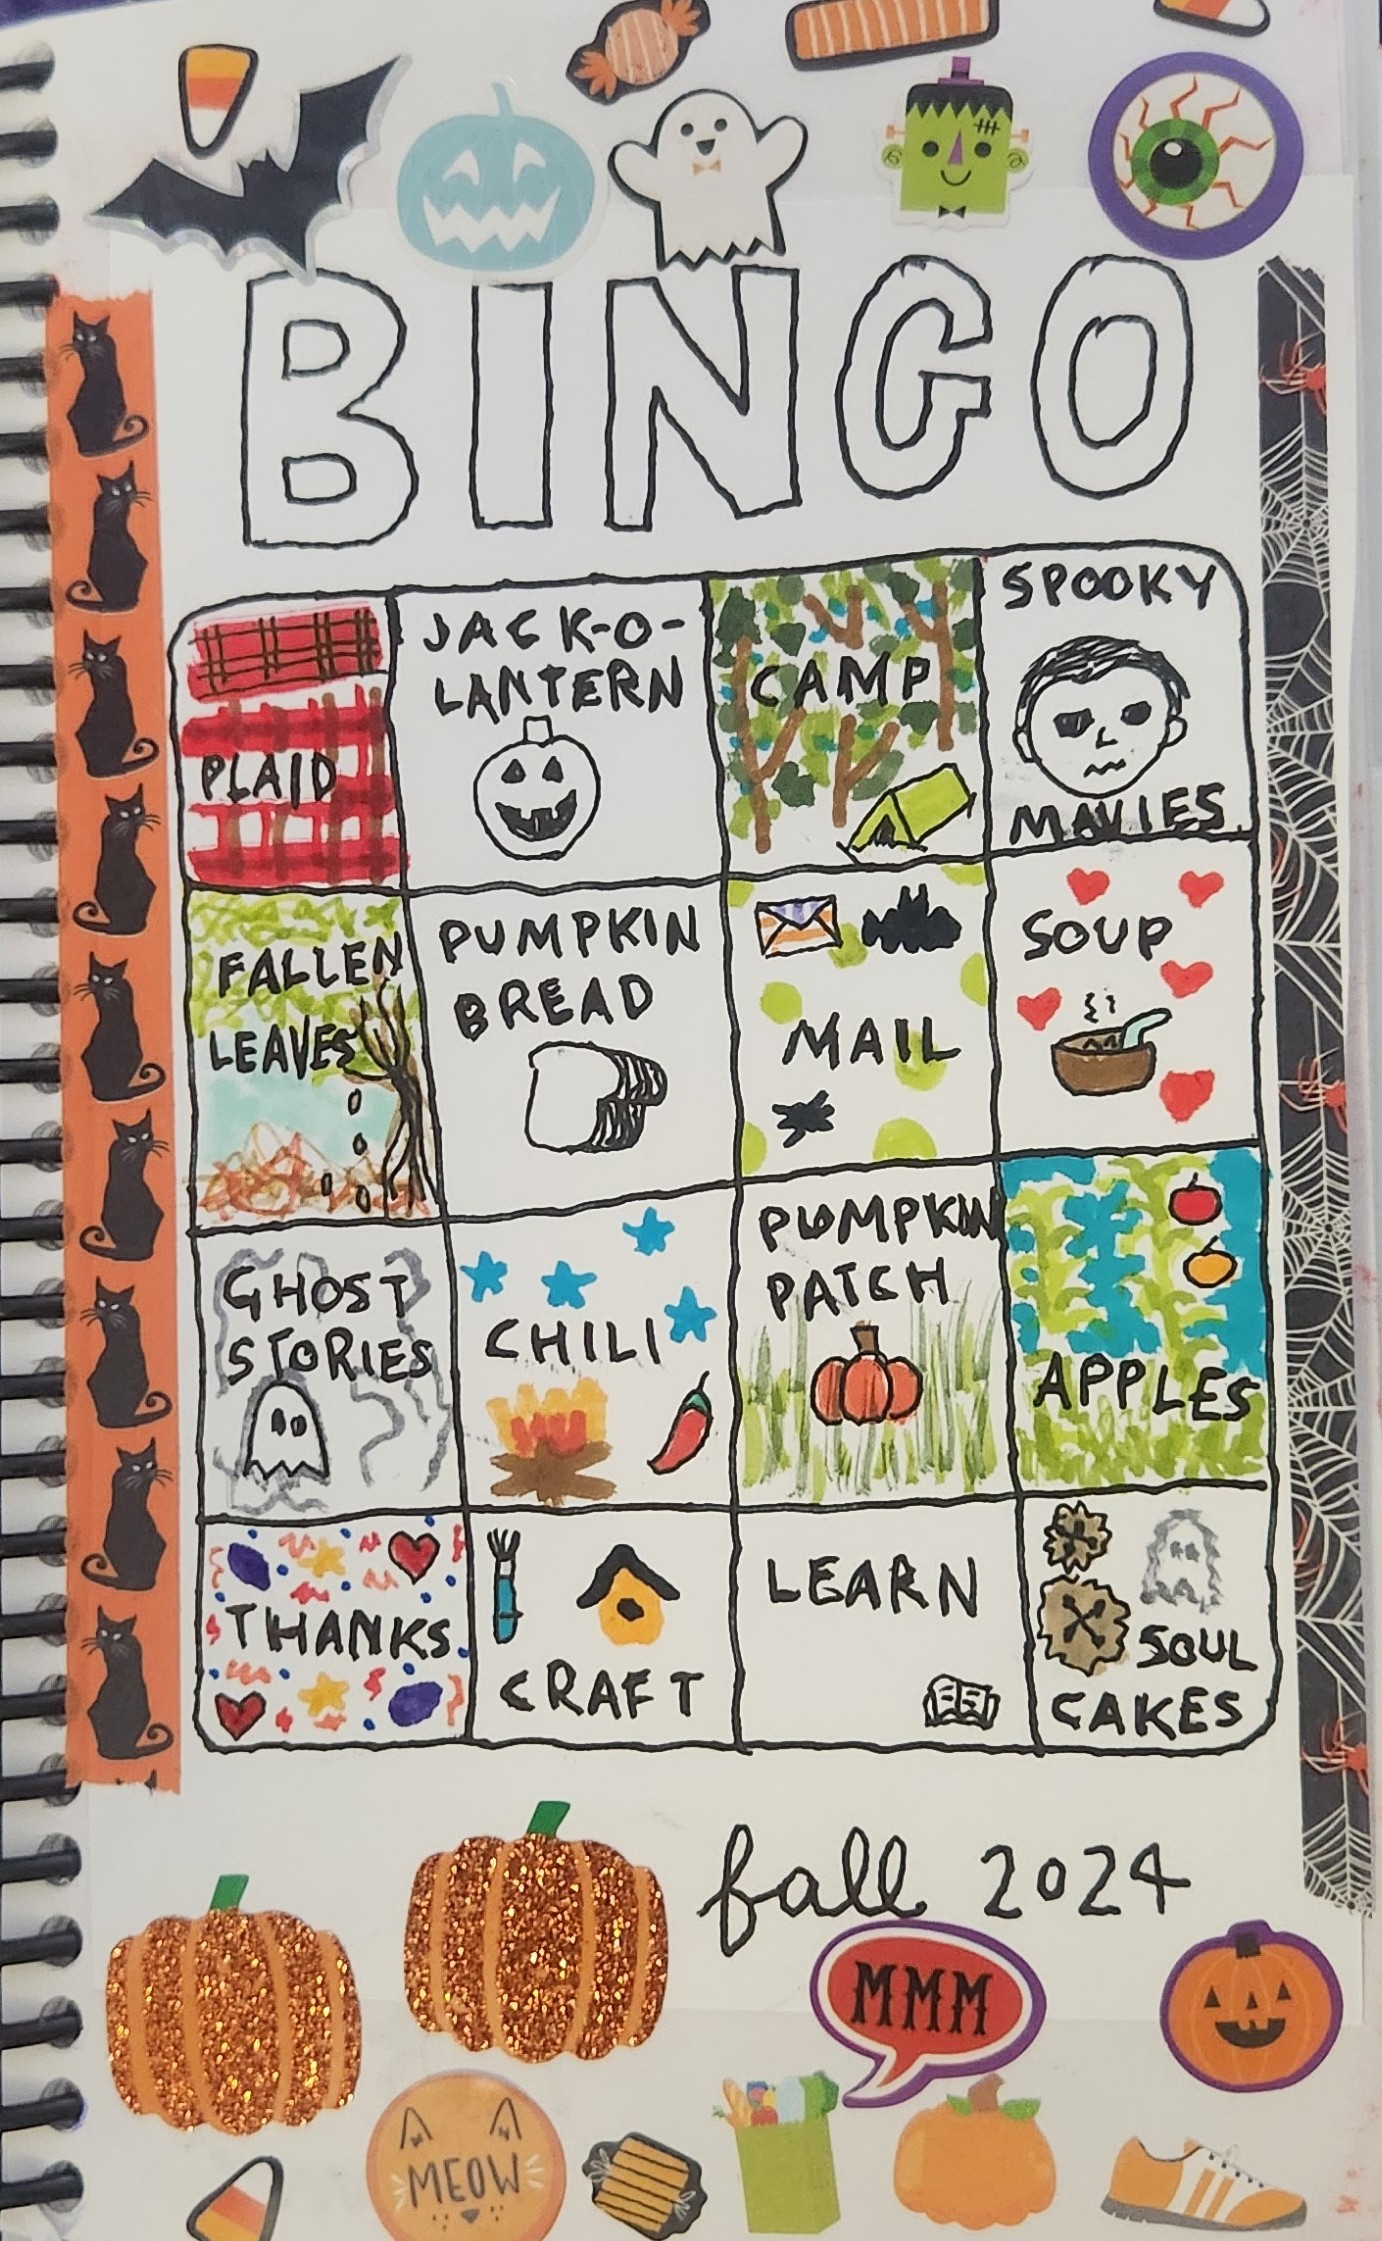 BINGO
PLAID
JACK-O-
LANTERN
CAMP
SPOOKY
MOVIES
FALLEN
LEAVES
PUMPKIN
BREAD
MAIL
SOUP
GHOST
STORIES
CHILI
PUMPKIN
PATCH
APPLES
THANKS
CRAFT
LEARN
SOUL
CAKES
fall 2024
MMM
MEOW